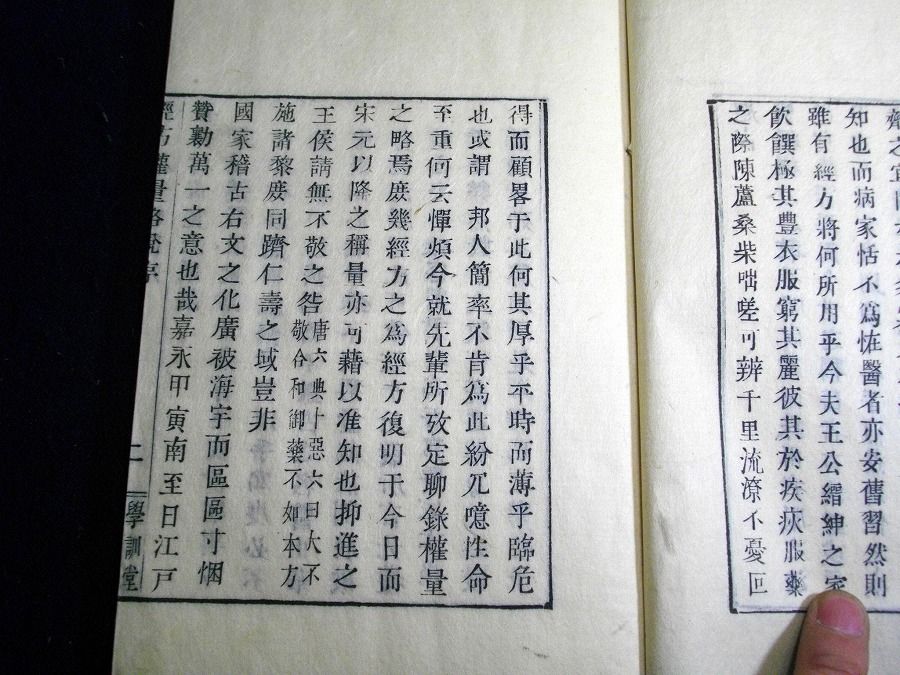 知也而病家恬不爲恠醫者亦安舊習然則
雖有經方將何所用乎今夫王公縉紳之家
飲饌極其豊衣服窮其麗彼其於疾疢服藥
之際陳蘆桑柴咄嗟可辨千里流潦不憂回
得而顧畧于此何其厚乎平時而薄乎臨危
也或謂邦人簡率不肯爲此紛冗噫性命
至重何云憚煩今就先輩所攷定聊錄權量
之略焉庶幾經方之爲經方復明于今日而
宋元以降之稱量亦可藉以准知也抑進之
王侯請無不敬之咎唐六典十惡六曰大不
敬合和御藥不如本方
施諸黎庶同躋仁壽之域豈非
國家稽古右文之化廣被海宇而區區寸悃
贊勷萬一之意也哉嘉永甲寅南至日江戸
經方權量略說序
二
學訓堂